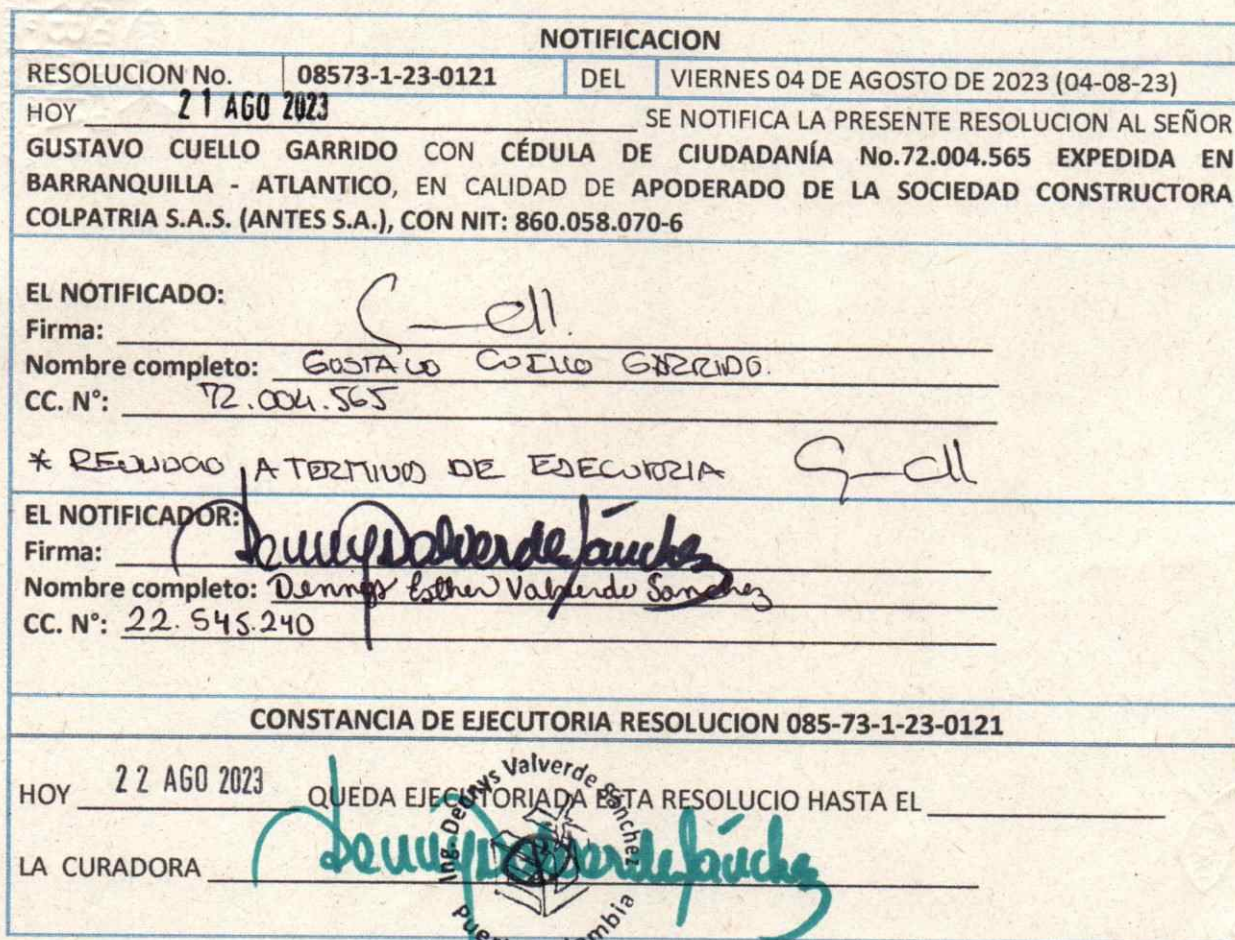 NOTIFICACION
RESOLUCION No. 08573-1-23-0121 DEL VIERNES 04 DE AGOSTO DE 2023 (04-08-23)
HOY 21 AGO 2023 SE NOTIFICA LA PRESENTE RESOLUCION AL SEÑOR
GUSTAVO CUELLO GARRIDO CON CÉDULA DE CIUDADANÍA No.72.004.565 EXPEDIDA EN
BARRANQUILLA - ATLANTICO, EN CALIDAD DE APODERADO DE LA SOCIEDAD CONSTRUCTORA
COLPATRIA S.A.S. (ANTES S.A.), CON NIT: 860.058.070-6
EL NOTIFICADO:
Firma:
Nombre completo: GUSTAVO CUELLO GARRIDO.
CC. N°: 72.004.565
* RENUNCIO A TERMINOS DE EJECUTORIA
EL NOTIFICADOR:
Firma: Dennys Valverde Sánchez
Nombre completo: Dennys Esther Valverde Sanchez
CC. N°: 22.545.240
CONSTANCIA DE EJECUTORIA RESOLUCION 085-73-1-23-0121
HOY 22 AGO 2023 QUEDA EJECUTORIADA ESTA RESOLUCIO HASTA EL
LA CURADORA Dennys Valverde Sánchez
Ing. Dennys Valverde Sánchez